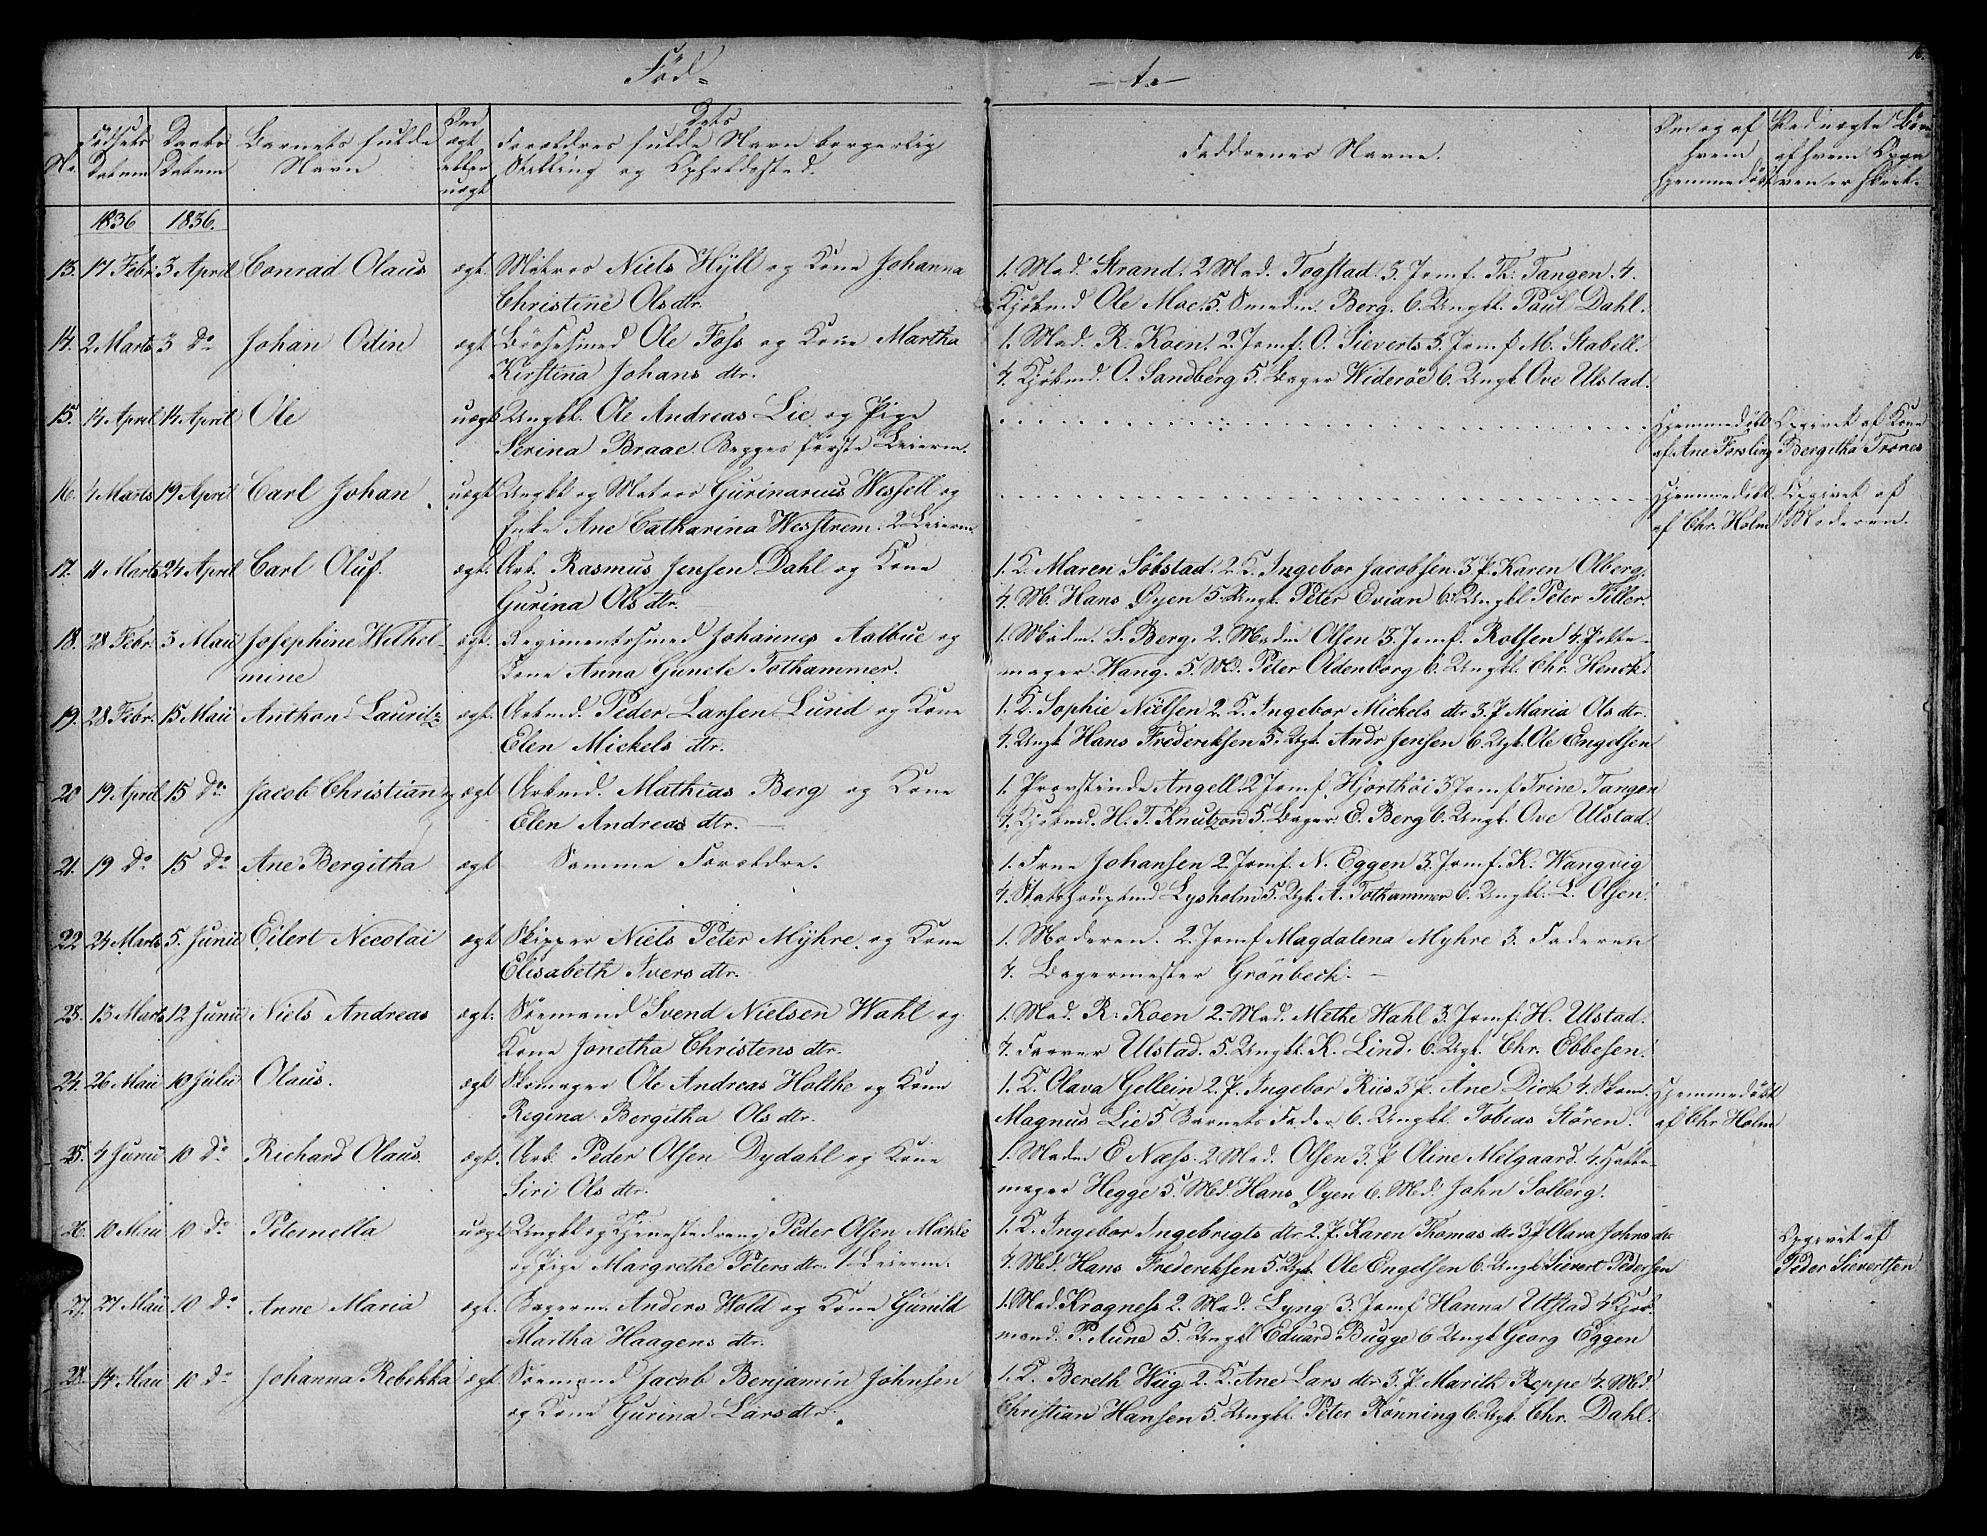 Fød=
-te-
16.
No.
Fødsels
Datum
Daabs
Datum
Barnets fulde
Navn
Om
ægt
eller
uægt
Dets
Forældres fulde Navn borgerlig
Stilling og Opholdssted.
Faddrenes Navne.
Om og af
hvem
hjemmedøbt
Ved uægte Børn
af hvem Opga
ven er skeet.
1836 1836.
13. 17 Febr. 3 April Conrad Olaus ægt. Matros Niels Hÿll og Kone Johanna
Christine Olsdtr.
1. Mad. Strand. 2 Mad. Togstad. 3. Jomf. Th: Tangen. 4.
Kjöbmd Ole Moe. 5. Smedm. Berg. 6. Ungk. Paul Dahl.
14. 2 Marts 3 do Johan Odin ægt Börsesmed Ole Foss og Kone Martha
Kirstina Johans dtr.
1. Mad. R. Koen. 2. Jomf. O. Sieverts 3. Jomf. M. Stabell.
4. Kjöbmd. O. Sandberg 5. Bager Wideröe 6. Ungk Ove Ulstad.
15. 14 April 14 April Ole uægt Ungkl. Ole Andreas Lie og Pige
Serina Braae. Begges første Leierm.
Hjemmedöbt
af Ane Forsling
Opgivet af Kone
Bergitha Trones
16. 4 Marts 19 April Carl Johan uægt Ungkl og Matros Gurinarius Wessell og
Enke Ane Catharina Wesstrem. 2 Leierm.
Hjemmedöbt
af Chr. Holm
Opgivet af
Moderen.
17. 11 Marts 24 April Carl Oluf. ægt. Arb. Rasmus Jensen Dahl og Kone
Gurina Ols dtr.
1. K. Maren Söbstad. 2. K. Ingebor Jacobsen. 3 P. Karen Olberg.
4. M. Hans Øyen 5. Ungk. Peter Evian 6. Ungkl Peter Tiller.
18. 28 Febr. 3 Maii Josephine Wilhel-
mine ægt. Regimentssmed Johannes Aalbue og
Kone Anna Gunele Tothammer.
1. Madm. S. Berg. 2. Madm Olsen 3. Jomf. Rolsen 4.
mager Wang. 5. Md. Peter Oldenborg 6. Ungkl. Chr. Henck.
19. 28 Febr. 15 Maii Anthon Lauritz ægt. Arbmd. Peder Larsen Lund og Kone
Elen Mickels dtr.
1. K. Sophie Nielsen 2. K. Ingebor Mickels dtr 3. P Maria Ols dtr.
4. Ungk Hans Frederiksen 5. Ugk. Andr Jensen 6. Ugk. Ole Engelsen
20 19 April 15 do Jacob Christian ægt Arbmd. Mathias Berg og Kone
Elen Andreas dtr.
1. Provstinde Angell. 2 Jomf. Hjorthöi 3 Jomf Trine Tangen
4. Kjöbmd. H. T. Knutzon 5. Bager. E. Berg 6. Ungk. Ove Ulstad.
21. 19 do 15 do Ane Bergitha ægt Samme Forældre.
1. Frue Johansen 2. Jomf. N. Eggen 3. Jomf. K. Wangvig
4. Stadshauptmd Lysholm 5. Ugk. A. Tothammer 6. Ungkl. L. Olsen.
22 24 Marts 5 Junii Eilert Nicolai ægt Skipper Niels Peter Mÿhre. og Kone
Elisabeth Ivers dtr.
1. Moderen. 2. Jomf Magdalena Myhre 3. Faderen
4. Bagermester Grönbeck.
23. 13 Marts 12 Junii Niels Andreas ægt. Sömand Svend Nielsen Wahl og
Kone Jonetha Christens dtr.
1. Mad. R. Koen 2. Mad. Methe Wahl 3. Jomf. H. Ulstad.
4. Farver Ulstad. 5. Ungkl. K. Lind. 6. Ugk. Chr. Ebbesen.
24. 26 Maii 10 Julii Olaus. ægt Skomager Ole Andreas Holthe og Kone
Regina Bergitha Ols dtr.
1. K. Olava Gellein 2. P. Ingebor Riis 3 P. Ane Dick 4. Skom.
Magnus Lie 5 Barnets Fader 6. Ungkl. Tobias Stören.
Hjemmedöbt
af Chr Holm
25. 4 Junii 10 do Richard Olaus. ægt. Arb. Peder Olsen Dydahl og Kone
Siri Ols dtr.
1. Madm E Næss. 2 Mad. Olsen 3. P Oline Melgaard. 4. Hatte-
mager Hegge 5. Md. Hans Øyen 6. Md. John Solberg.
26. 10 Maii 10 do Peternella uægt Ungkl og Tjenestedreng Peder Olsen Mæhle
og Pige Margrethe Peters dtr. 1 Leierm.
1. K. Ingebor Ingebrigts dtr 2. P. Karen Thomas dtr 3 P Olava Johns dtr
4. Md. Hans Frederiksen 5. Ugk. Ole Engelsen 6. Ungk Sievert Pedersen
Opgivet af
Peder Sievertsen
27. 27 Maii 10 do Anne Maria ægt. Bagerm. Anders Wold og Kone Gunild
Martha Haagens dtr.
1. Mad. Kragness 2. Mad. Lyng 3. Jomf Hanna Ulstad 4 Kjöb
mand. P. Aune 5. Ungkl Eduard Bugge 6 Ungk Georg Eggen
28. 14 Maii 10 do Johanna Rebekka ægt Sömand Jacob Benjamin Johnsen
og Kone Gurina Lars dtr.
1. K. Bereth Wiig 2. K. Ane Lars dtr 3. P. Marith Reppe 4. Md.
Christian Hansen 5. Ungkl. Peter Rönning 6. Ugk. Chr. Dahl.